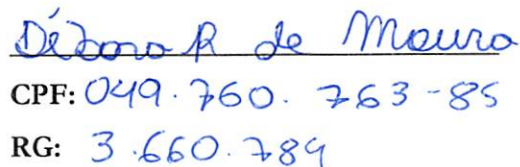 Débora R de Moura
CPF: 049.760.763-85
RG: 3.660.784